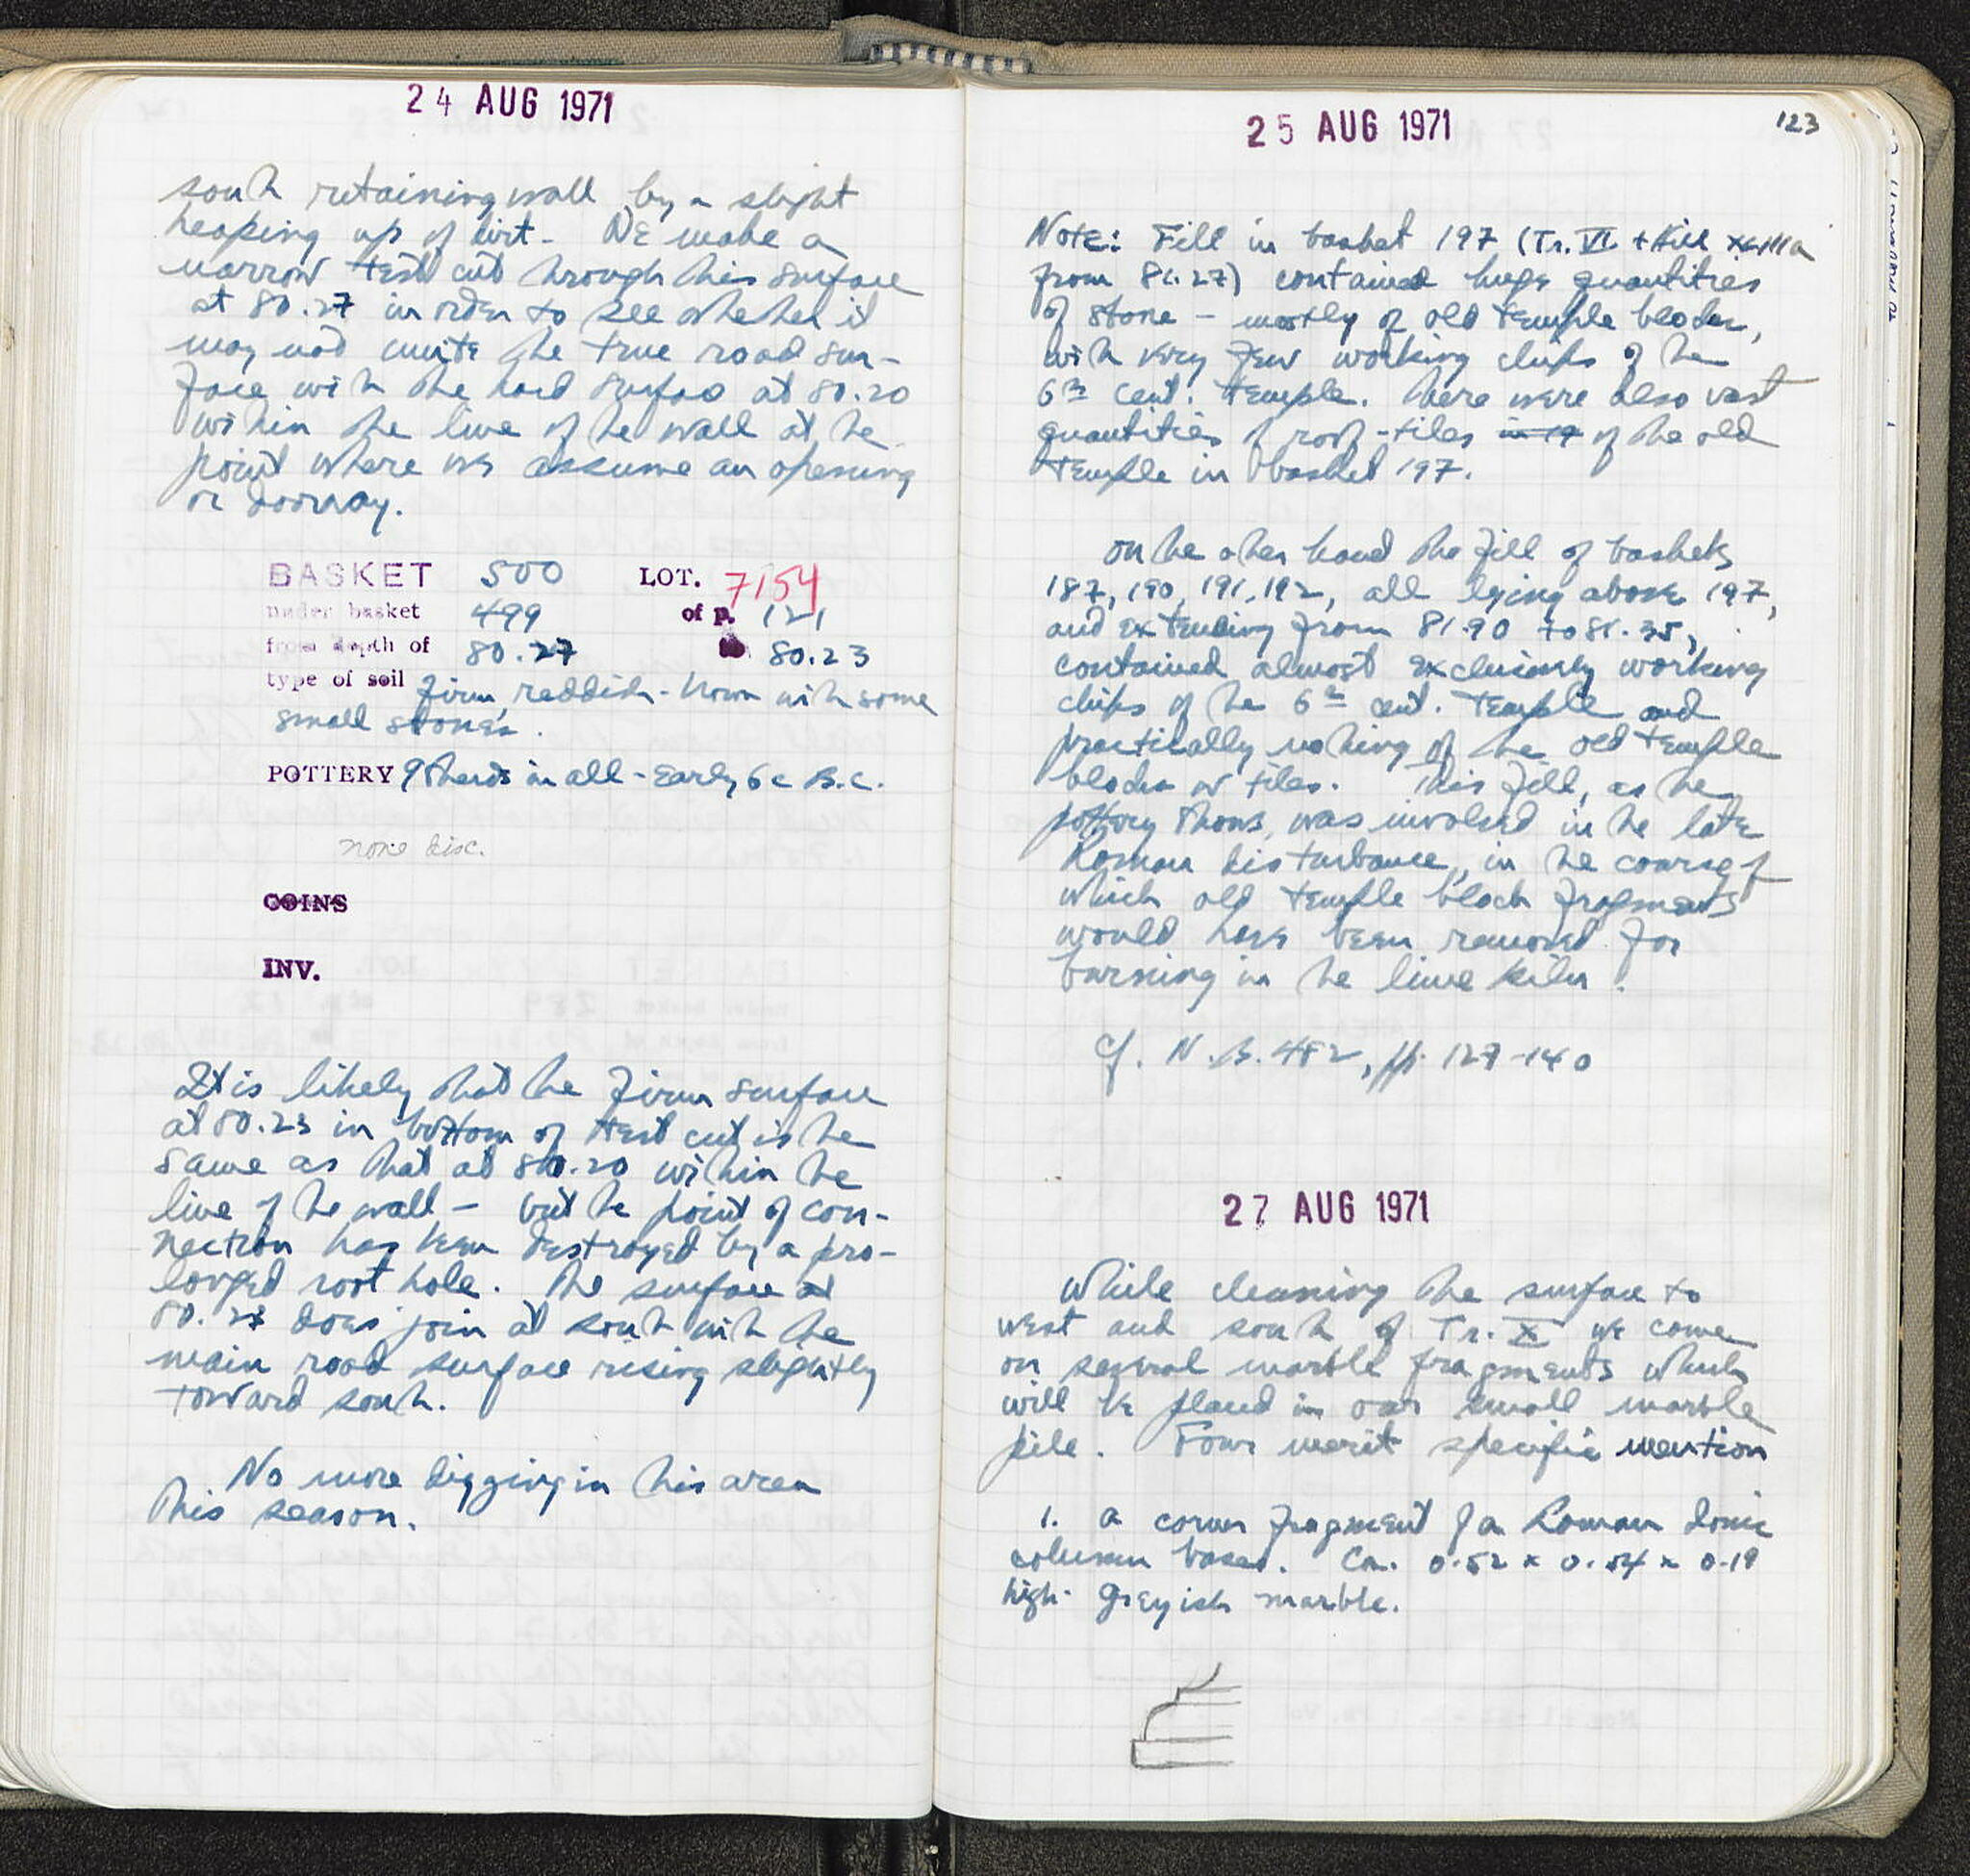 24 AUG 1971
south retaining wall by a slight
heaping up of dirt. We make a
narrow test cut through this surface
at 80.27 in order to see whether it
may not unite the true road sur-
face with the hard surface at 80.20
within the line of the wall at the
point where we assume an opening
or doorway.
BASKET 500 LOT. 7154
under basket 499 of p. 121
from depth of 80.27 80.23
type of soil firm, reddish-brown with some
small stones.
POTTERY 9 sherds in all - Early 6c B.C.
none disc.
COINS
INV.
It is likely that the firm surface
at 80.23 in bottom of test cut is the
same as that at 80.20 within the
line of the wall - but the point of con-
nection has been destroyed by a pro-
longed root hole. The surface at
80.23 does join at south with the
main road surface rising slightly
toward south.
No more digging in this area
this season.
25 AUG 1971
123
Note: Fill in basket 197 (Tr. VI
from 81.27) contained huge quantities
of stone - mostly of old temple blocks,
with very few working chips of the
6th cent. temple. There were also vast
quantities of roof-tiles in 19 of the old
temple in basket 197.
On the other hand the fill of baskets
187, 190, 191, 192, all lying above 197,
and extending from 81.90 to 81.35,
contained almost exclusively working
chips of the 6th cent. Temple and
practically nothing of the old temple
blocks or tiles. This fill, as the
pottery shows, was involved in the late
Roman disturbance, in the course of
which old temple block fragments
would have been removed for
burning in the lime kiln.
cf. N.B. 482, pp. 127-140
27 AUG 1971
While cleaning the surface to
west and south of Tr. X we come
on several marble fragments which
will be placed in our small marble
pile. Four merit specific mention
1. a corner fragment of a Roman Ionic
column base. Ca. 0.52 x 0.54 x 0.19
high. Greyish marble.